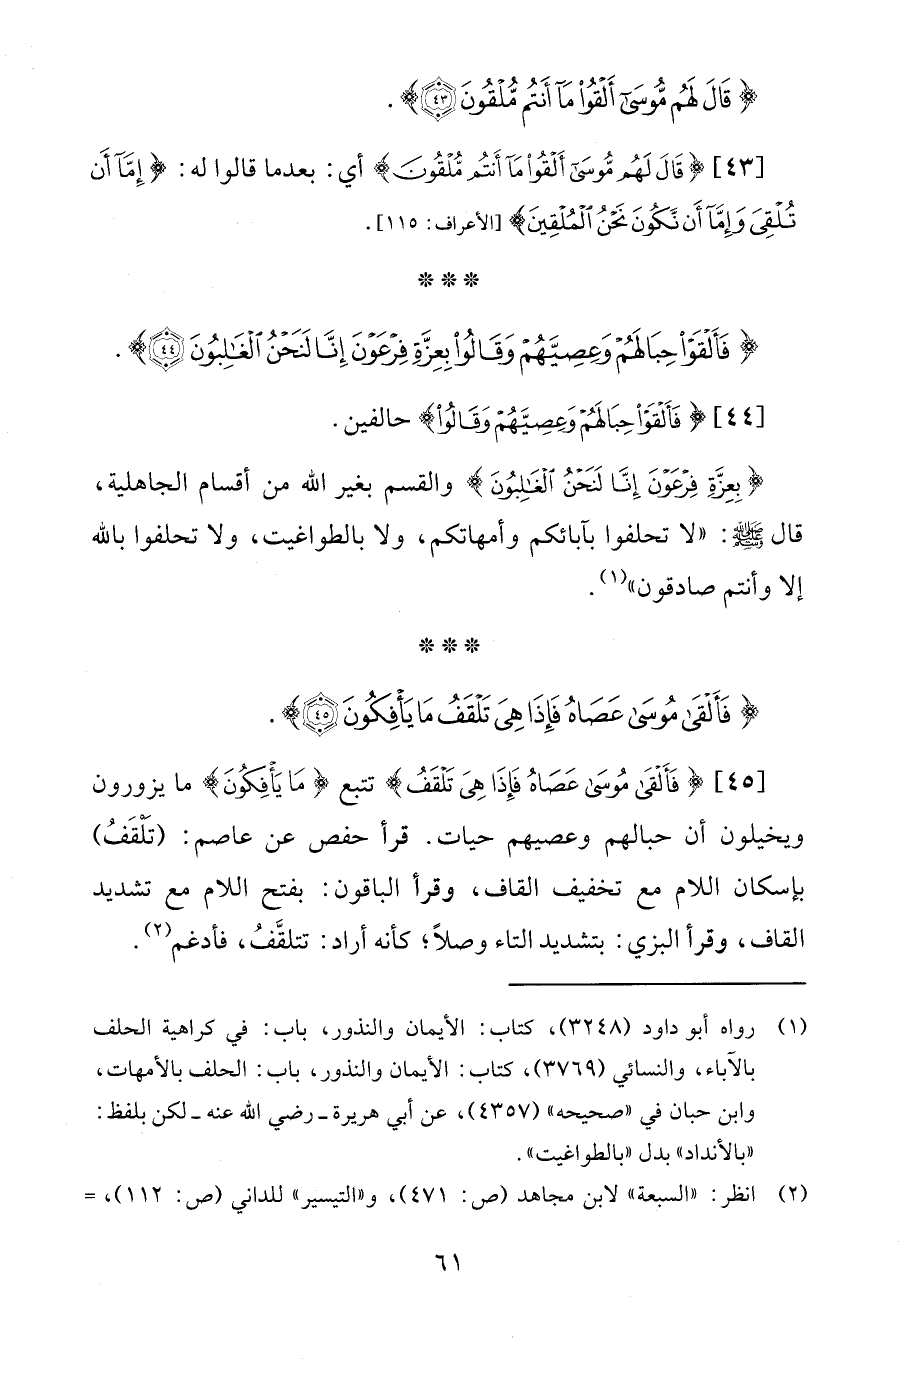 ﴿ قَالَ لَهُم مُّوسَىٰٓ أَلْقُوا۟ مَآ أَنتُم مُّلْقُونَ ٤٣ ﴾ .
[٤٣] ﴿ قَالَ لَهُم مُّوسَىٰٓ أَلْقُوا۟ مَآ أَنتُم مُّلْقُونَ ﴾ أي: بعدما قالوا له: ﴿ إِمَّآ أَن
تُلْقِىَ وَإِمَّآ أَن نَّكُونَ نَحْنُ ٱلْمُلْقِينَ ﴾ [الأعراف: ١١٥].
* * *
﴿ فَأَلْقَوْا۟ حِبَالَهُمْ وَعِصِيَّهُمْ وَقَالُوا۟ بِعِزَّةِ فِرْعَوْنَ إِنَّا لَنَحْنُ ٱلْغَـٰلِبُونَ ٤٤ ﴾ .
[٤٤] ﴿ فَأَلْقَوْا۟ حِبَالَهُمْ وَعِصِيَّهُمْ وَقَالُوا۟ ﴾ حالفين.
﴿ بِعِزَّةِ فِرْعَوْنَ إِنَّا لَنَحْنُ ٱلْغَـٰلِبُونَ ﴾ والقسم بغير الله من أقسام الجاهلية،
قال ﷺ: «لا تحلفوا بآبائكم وأمهاتكم، ولا بالطواغيت، ولا تحلفوا بالله
إلا وأنتم صادقون»(١).
* * *
﴿ فَأَلْقَىٰ مُوسَىٰ عَصَاهُ فَإِذَا هِىَ تَلْقَفُ مَا يَأْفِكُونَ ٤٥ ﴾ .
[٤٥] ﴿ فَأَلْقَىٰ مُوسَىٰ عَصَاهُ فَإِذَا هِىَ تَلْقَفُ ﴾ تتبع ﴿ مَا يَأْفِكُونَ ﴾ ما يزورون
ويخيلون أن حبالهم وعصيهم حيات. قرأ حفص عن عاصم: (تَلْقَفُ)
بإسكان اللام مع تخفيف القاف، وقرأ الباقون: بفتح اللام مع تشديد
القاف، وقرأ البزي: بتشديد التاء وصلاً؛ كأنه أراد: تتلقَّفُ، فأدغم(٢).
(١) رواه أبو داود (٣٢٤٨)، كتاب: الأيمان والنذور، باب: في كراهية الحلف
بالآباء، والنسائي (٣٧٦٩)، كتاب: الأيمان والنذور، باب: الحلف بالأمهات،
وابن حبان في «صحيحه» (٤٣٥٧)، عن أبي هريرة ـ رضي الله عنه ـ لكن بلفظ:
«بالأنداد» بدل «بالطواغيت».
(٢) انظر: «السبعة» لابن مجاهد (ص: ٤٧١)، و«التيسير» للداني (ص: ١١٢)، =
٦١